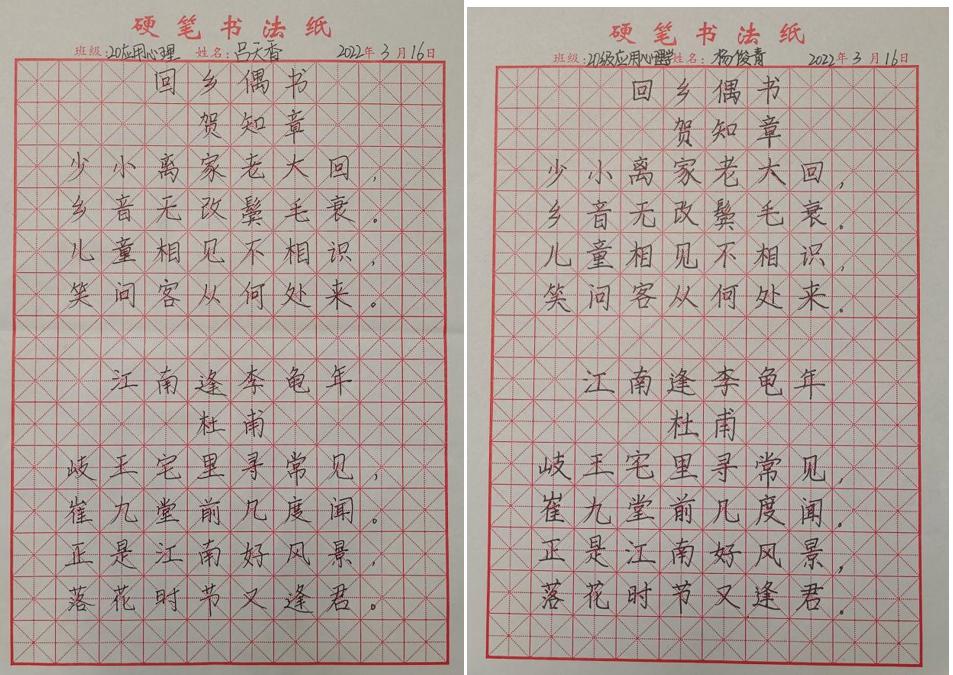 硬笔书法纸
班级:20应用心理 姓名:吕天香 2022年3月16日
回乡偶书
贺知章
少小离家老大回,
乡音无改鬓毛衰。
儿童相见不相识,
笑问客从何处来。
江南逢李龟年
杜甫
岐王宅里寻常见,
崔九堂前凡度闻。
正是江南好风景,
落花时节又逢君。
硬笔书法纸
班级:20级应用心理学 姓名:杨俊青 2022年3月16日
回乡偶书
贺知章
少小离家老大回,
乡音无改鬓毛衰.
儿童相见不相识,
笑问客从何处来.
江南逢李龟年
杜甫
岐王宅里寻常见,
崔九堂前凡度闻.
正是江南好风景,
落花时节又逢君.